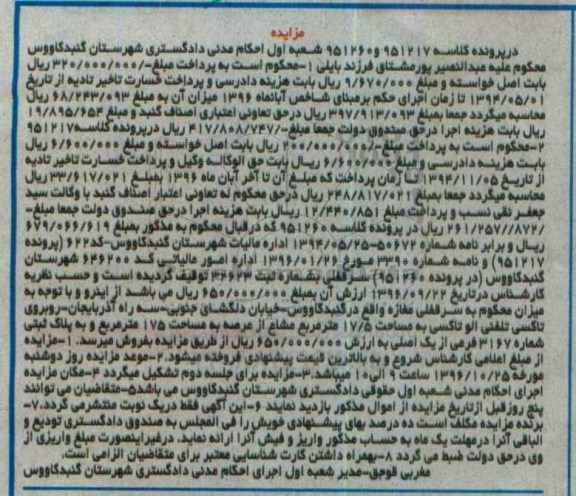 مزایده
درپرونده کلاسه ۹۵۱۲۱۷ و ۹۵۱۲۶۰ شعبه اول احکام مدنی دادگستری شهرستان گنبدکاووس
محکوم علیه عبدالنصیر پورمشتاق فرزند بابلی ۱-محکوم است به پرداخت مبلغ-/۳۲۰/۰۰۰/۰۰۰ ریال
بابت اصل خواسته و مبلغ ۹/۶۷۰/۰۰۰ ریال بابت هزینه دادرسی و پرداخت خسارت تاخیر تادیه از تاریخ
۱۳۹۴/۰۵/۰۱ تا زمان اجرای حکم برمبنای شاخص آبانماه ۱۳۹۶ میزان آن به مبلغ ۶۸/۲۴۳/۰۹۳ ریال
محاسبه میگردد جمعا بمبلغ ۳۹۷/۹۱۳/۰۹۳ ریال درحق تعاونی اعتباری اصناف گنبد و مبلغ ۱۹/۸۹۵/۶۵۴
ریال بابت هزینه اجرا درحق صندوق دولت جمعا مبلغ-/۴۱۷/۸۰۸/۷۴۷ ریال درپرونده کلاسه۹۵۱۲۱۷
۲-محکوم است به پرداخت مبلغ-/۲۰۰/۰۰۰/۰۰۰ ریال بابت اصل خواسته و مبلغ ۶/۶۰۰/۰۰۰ ریال
بابت هزینه دادرسی و مبلغ ۶/۶۰۰/۰۰۰ ریال بابت حق الوکاله وکیل و پرداخت خسارت تاخیر تادیه
از تاریخ ۱۳۹۴/۱۱/۰۵ تا زمان پرداخت که مبلغ آن تا آخر آبان ماه ۱۳۹۶ بمبلغ ۳۳/۶۱۷/۰۲۱ ریال
محاسبه میگردد جمعا بمبلغ ۲۴۸/۸۱۷/۰۲۱ ریال درحق محکوم له تعاونی اعتبار اصناف گنبد با وکالت سید
جعفر نقی نسب و پرداخت مبلغ ۱۲/۴۴۰/۸۵۱ ریال بابت هزینه اجرا درحق صندوق دولت جمعا مبلغ-
/۲۶۱/۲۵۷/۸۷۲ ریال در پرونده کلاسه ۹۵۱۲۶۰ که درقبال محکوم به مذکور بمبلغ ۶۷۹/۰۶۶/۶۱۹
ریال و برابر نامه شماره ۵۰۶۷۲-۱۳۹۴/۰۵/۲۵ اداره مالیات شهرستان گنبدکاووس-کد۶۲۲ (پرونده
۹۵۱۲۱۷) و نامه شماره ۳۳۹۰ مورخ ۱۳۹۶/۰۱/۲۶ اداره امور مالیاتی کد ۶۴۶۲۰۰ شهرستان
گنبدکاووس (در پرونده ۹۵۱۲۶۰) سرقفلی بشماره ثبت ۳۲۶۲۳ توقیف گردیده است و حسب نظریه
کارشناس درتاریخ ۱۳۹۶/۰۹/۲۲ ارزش آن بمبلغ ۶۵۰/۰۰۰/۰۰۰ ریال می باشد از اینرو و با توجه به
میزان محکوم به سرقفلی مغازه واقع درگنبدکاووس-خیابان دلگشای جنوبی-سه راه آذربایجان-روبروی
تاکسی تلفنی الو تاکسی به مساحت ۱۷/۵ مترمربع مشاع از عرصه به مساحت ۱۷۵ مترمربع و به پلاک ثبتی
شماره ۳۱۶۷ فرعی از یک اصلی به ارزش ۶۵۰/۰۰۰/۰۰۰ ریال از طریق مزایده بفروش میرسد. ۱-مزایده
از مبلغ اعلامی کارشناس شروع و به بالاترین قیمت پیشنهادی فروخته میشود.۲-موعد مزایده روز دوشنبه
مورخه ۱۳۹۶/۱۰/۲۵ ساعت ۹ الی۱۰ میباشد.۳-مزایده برای جلسه دوم تشکیل میگردد ۴-مکان مزایده
اجرای احکام مدنی شعبه اول حقوقی دادگستری شهرستان گنبدکاووس می باشد۵-متقاضیان می توانند
پنج روزقبل ازتاریخ مزایده از اموال مذکور بازدید نمایند ۶-این آگهی فقط دریک نوبت منتشرمی گردد.۷-
برنده مزایده مکلف است ده درصد بهای پیشنهادی خویش را فی المجلس به صندوق دادگستری تودیع و
الباقی آنرا درمهلت یک ماه به حساب مذکور واریز و فیش آنرا ارائه نماید. درغیراینصورت مبلغ واریزی از
وی درحق دولت ضبط می گردد ۸-بهمراه داشتن کارت شناسایی معتبر برای متقاضیان الزامی است.
مغربی قوجق-مدیر شعبه اول اجرای احکام مدنی دادگستری شهرستان گنبدکاووس